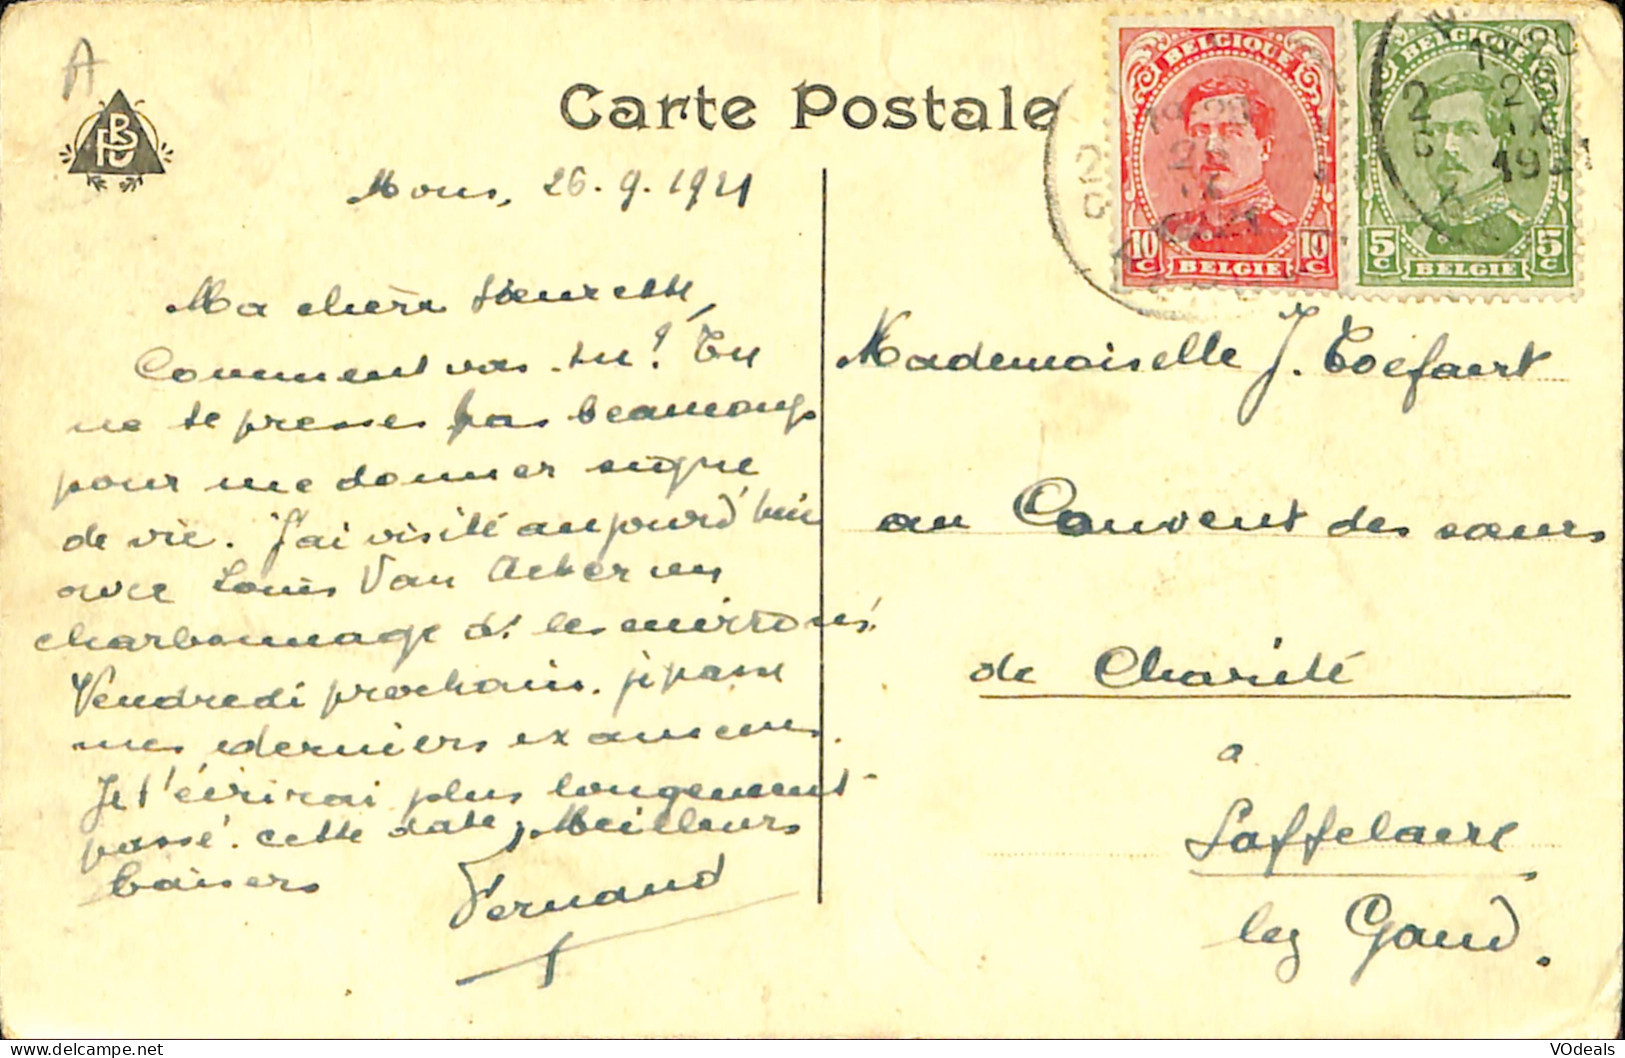 A
Carte Postale
BELGIQUE
10 C 10 C
BELGIE
BELGIQUE
5 C 5 C
BELGIE
Mons, 26.9.1921
Ma chère Henriette,
Comment vas-tu! Tu
ne te presses pas beaucoup
pour me donner signe
de vie. J'ai visité aujourd'hui
avec Louis Van Acker un
charbonnage et les environs.
Vendredi prochain je passe
mes derniers examens.
Je t'écrirai plus longuement
passé cette date, Meilleurs
baisers
Fernand
Mademoiselle J.
au Couvent des sœurs
de Charité
à
Laffelaere
lez Gand.
VOdeals